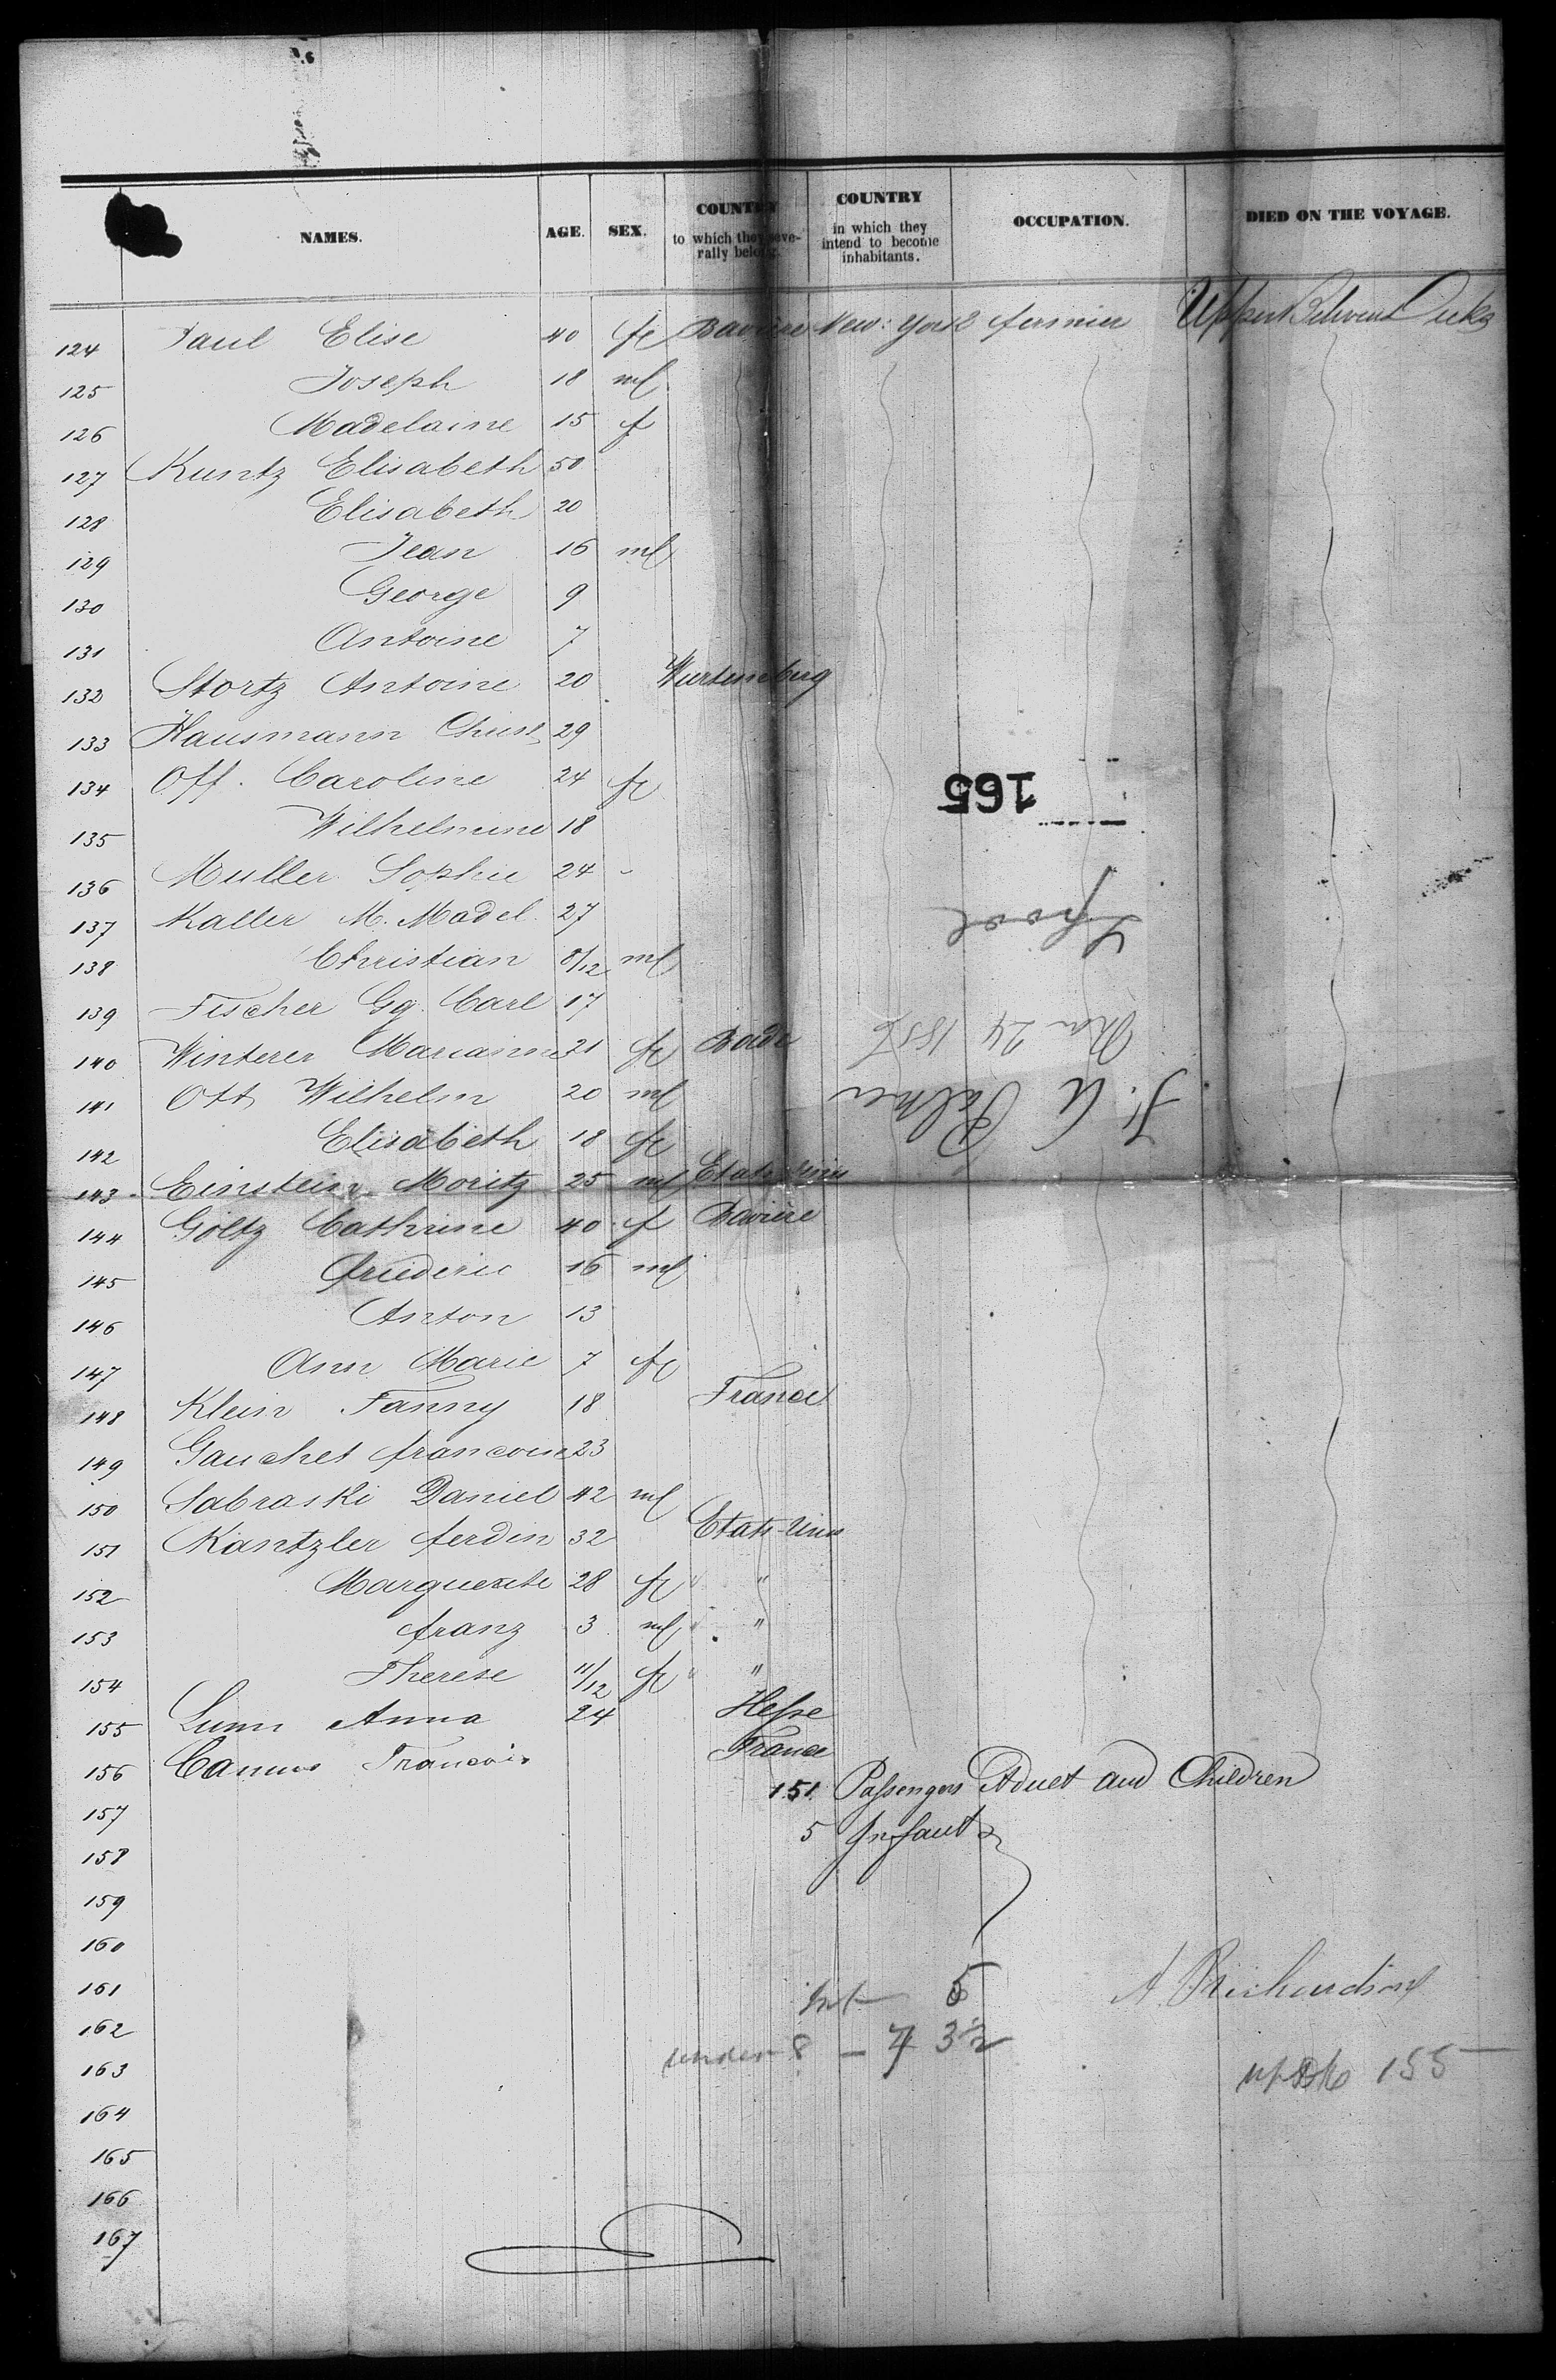 NAMES. AGE. SEX. COUNTRY to which they seve-rally belong. COUNTRY in which they intend to become inhabitants. OCCUPATION. DIED ON THE VOYAGE.
124 Paul Elise 40 fe Baviere New: York fermier Upper Between Decks
125 Joseph 18 ml
126 Madelaine 15 f
127 Kuntz Elisabeth 50
128 Elisabeth 20
129 Jean 16 ml
130 George 9
131 Antoine 7
132 Stortz Antoine 20 Wurtemberg
133 Hausmann Christ 29
134 Off. Caroline 24 fe
135 Wilhelmine 18
136 Muller Sophie 24 -
137 Kaller M. Madel. 27
138 Christian 8/12 ml
139 Fischer Gg. Carl 17
140 Winterer Marianne 21 fe Bade
141 Ott Wilhelm 20 ml
142 Elisabeth 18 fe
143 Einstein Moritz 25 ml Etats Unis
144 Göltz Cathrine 40 f Baviere
145 friederic 16 ml
146 Anton 13
147 Ann Marie 7 fe
148 Klein Fanny 18 France
149 Gauchet francoise 23
150 Sabraski Daniel 42 ml
151 Kantzler ferdin 32 Etats-Unis
152 Marguerite 28 fe " "
153 franz 3 ml " "
154 Therese 11/12 fe " "
155 Lumi Anna 24 Hesse
156 Camus Francois France
151 Passengers Adult and Children
157
5 Infants
158
159
160
161
inf 5 A. Richardson
162
under 8 - 7 32
163
155
164
165
166
167
165
24 185
J. A. Palmer